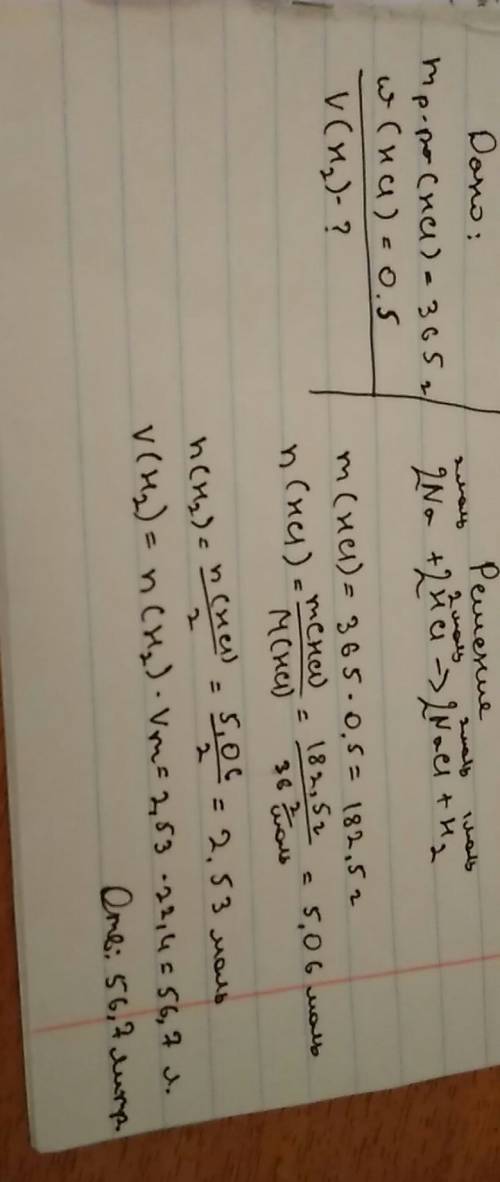 Дано:
m р-ра (HCl) = 365 г
w (HCl) = 0.5
V(H₂) - ?
Решение
2моль 2моль 2моль 1моль
2Na + 2HCl → 2NaCl + H₂
m(HCl) = 365 · 0,5 = 182,5 г
n(HCl) = m(HCl) / M(HCl) = 182,5 г / 36 г/моль = 5,06 моль
n(H₂) = n(HCl) / 2 = 5,06 / 2 = 2,53 моль
V(H₂) = n(H₂) · Vm = 2,53 · 22,4 = 56,7 л.
Отв: 56,7 литр.